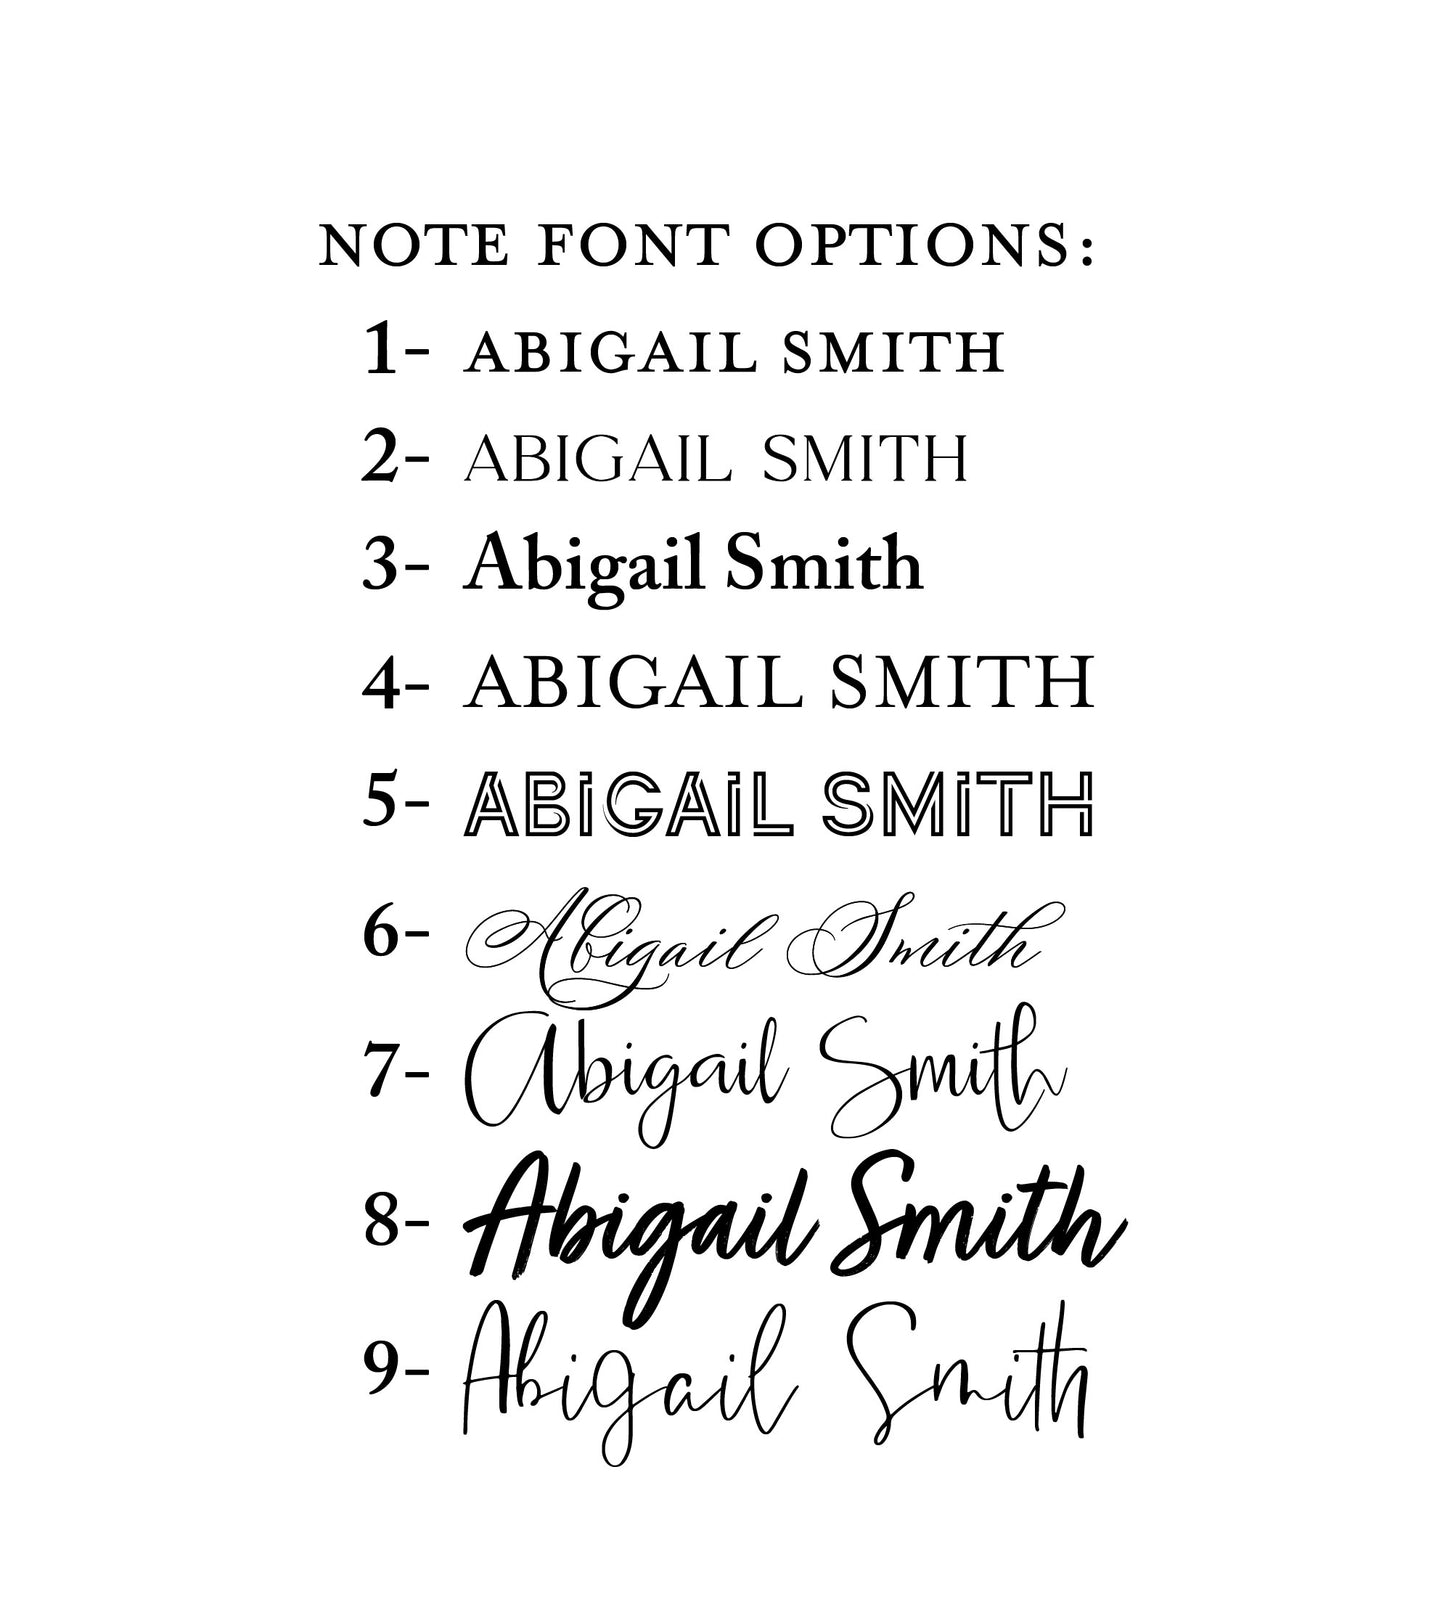 NOTE FONT OPTIONS:
1- ABIGAIL SMITH
2- ABIGAIL SMITH
3- Abigail Smith
4- ABIGAIL SMITH
5- ABiGAiL SMiTH
6- Abigail Smith
7- Abigail Smith
8- Abigail Smith
9- Abigail Smith